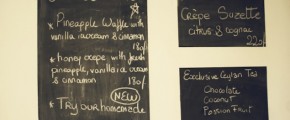 * Pineapple Waffle with
vanilla icecream & cinnamon
180/-
* honey crepe with fresh
pineapple, vanilla ice
cream & cinnamon
180/-
NEW
* Try our homemade
Crêpe Suzette
citrus & cognac
220/-
Exclusive Ceylan Tea
Chocolate
Coconut
Passion Fruit